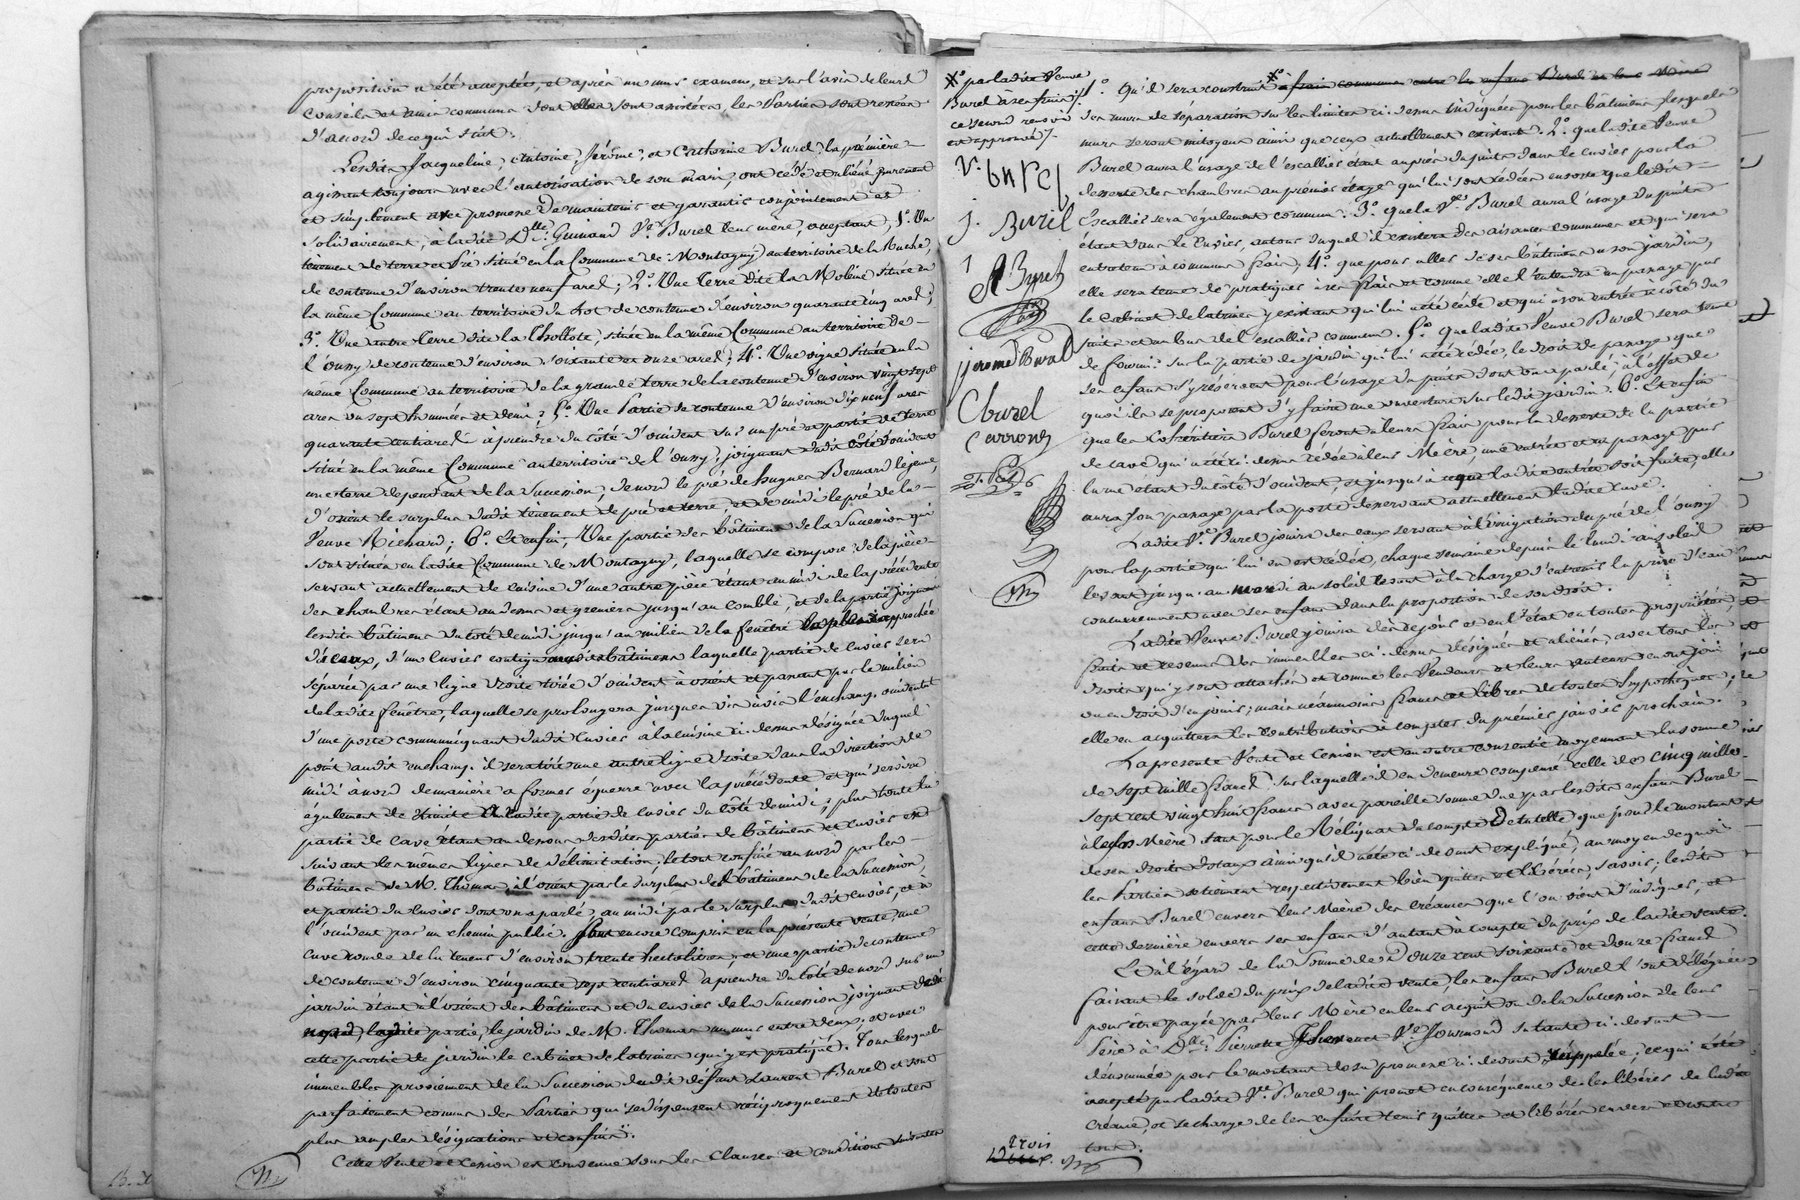 proposition a été acceptée, et après un mur examen, et sur l'avis de leurs
conseils et amis communs dont elles sont assistées, les Parties sont restées
d'accord de ce qui suit:
Lesdits Jacqueline, Antoine, Jérôme, et Catherine Burel, la première
agissant toujours avec l'autorisation de son mari, ont cédé et aliéné purement
et simplement avec promesse de maintenir et garantir conjointement et
solidairement, à ladite D.lle Guinand V.e Burel leur mère, acceptant, 1.o Un
tenement de terre et Pré situé en la Commune de Montagny au territoire de la
de contenue d'environ trente neuf ares; 2.o Une Terre dite la Moline située en
la même Commune au territoire du Bot de contenue d'environ quarante cinq ares;
3.o Une autre Terre dite la Chollote, située en la même Commune au territoire de
l'ouny de contenue d'environ soixante et onze ares; 4.o Une vigne située en la
même Commune au territoire de la grande terre de la contenue d'environ vingt sept
ares ou sept hommées et demi; 5.o Une Partie de contenue d'environ dix neuf ares
quarante centiares à prendre du côté d'occident sur un pré et partie de terre
situé en la même Commune au territoire de l'ouny, joignant dudit côté d'occident
une terre dépendant de la Succession, de nord le pré de hugues Bernard le jeune,
d'orient le surplus dudit tenement de pré et terre, et de midi le pré de la
Veuve Richard; 6.o Et enfin, Une partie des bâtiments de la Succession qui
sont situés en ladite Commune de Montagny, laquelle se compose de la pièce
servant actuellement de cuisine d'une autre pièce étant au midi de la précédente
des chambres étant au dessus et greniers jusqu'au comble, et de la partie joignant
lesdits bâtiments du côté de midi jusqu'au milieu de la fenêtre la plus rapprochée
d'iceux, d'un cuvier contigu auxdits bâtiments laquelle partie de cuvier sera
séparée par une ligne droite tirée d'occident à orient et passant par le milieu
de ladite fenêtre, laquelle se prolongera jusques vis à vis l'enchamp. occidental
d'une porte communiquant dudit cuvier à la cuisine ci-dessus désignée duquel
point audit enchamp. il sera tiré une autre ligne droite dans la direction de
midi à nord de manière à former équerre avec la précédente et qui servira
également de limite à ladite partie de cuvier du côté de midi; plus toute la
partie de cave étant au dessous desdites parties de bâtiments et cuvier et
suivant les mêmes lignes de délimitation, le tout confiné au nord par les
bâtiments de M. Thomas, à l'orient par le surplus des bâtiments de la Succession,
et partie du cuvier dont on a parlé, au midi par le surplus dudit cuvier, et à
l'occident par un chemin public. Sont encore compris en la présente vente, une
cuve ronde de la teneur d'environ trente hectolitres; et une partie de contenue
de contenue d'environ cinquante sept centiares à prendre du côté de nord sur un
jardin étant à l'orient des bâtiments et du cuvier de la Succession joignant dudit
nord, ladite partie, le jardin de M. Thomas un mur entre deux; et avec
cette partie de jardin le cabinet de latrines qui y est pratiqué. Tous lesquels
immeubles proviennent de la Succession dudit défunt Laurent Burel et sont
parfaitement connus des Parties qui se dispensent réciproquement de toutes
plus amples désignations et confins.
Cette Vente et Cession est consentie sous les Clauses et conditions suivantes
X.o par ladite Veuve
Burel à ses frais
ce second renvoi
est approuvé
V.e burel
j. Burel
A Burel
jerome Burel
C burel
Carrony
1.o Qu'il sera construit X.o à frais communs entre les enfans Burel et leur Mère
des murs de séparation sur les limites ci-dessus indiquées pour les bâtiments lesquels
murs seront mitoyens ainsi que ceux actuellement existant. 2.o que ladite Veuve
Burel aura l'usage de l'escallier étant auprès du puits dans le cuvier pour la
desserte des chambres au premier étage qui lui sont cédées en sorte que ledit
Escallier sera également commun. 3.o que la V.e Burel aura l'usage du puits
étant dans le cuvier, autour duquel il existera des aisances communes et qui sera
entretenu à communs frais; 4.o que pour aller de ses bâtiments à son jardin,
elle sera tenue de pratiquer à ses frais et comme elle l'entendra un passage par
le cabinet de latrines y existant qui lui a été cédé et qui a son entrée à côté du
puits et au bas de l'escallier commun. 5.o que ladite Veuve Burel sera tenue
de fournir sur la partie de jardin qui lui a été cédée, le droit de passage que
ses enfans s'y réservent pour l'usage du puits dont on a parlé; à l'effet de
quoi ils se proposent d'y faire une ouverture sur ledit jardin. 6.o Et enfin
que les Cohéritiers Burel feront à leurs frais pour la desserte de la partie
de cave qui a été ci-dessus cédée à leur Mère une entrée et un passage par
la rue étant du côté d'occident, et jusqu'à ce que ladite entrée soit faite, elle
aura son passage par la porte desservant actuellement ladite cave.
Ladite V.e Burel jouira des eaux servant à l'irrigation du pré de l'ouny
pour la partie qui lui en est cédée, chaque semaine depuis le lundi au soleil
levant jusqu'au mardi au soleil levant à la charge d'entretenir la prise d'eau
concurremment avec ses enfans dans la proportion de son droit.
Ladite Veuve Burel jouira dès ce jour et en l'état en toute propriété,
fruits et revenus des immeubles ci-dessus désignés et aliénés, avec tous les
droits qui y sont attachés et comme les Vendeurs et leurs auteurs en ont joui
ou eu droit d'en jouir; mais néanmoins francs et libres de toutes hypothèques;
elle en acquittera les contributions à compter du premier janvier prochain.
La présente Vente et Cession est en outre consentie moyennant la somme
de Sept mille francs sur laquelle il en demeure compensé celle de cinq mille
sept cent vingt huit francs avec pareille somme due par lesdits enfans Burel
à leur Mère tant pour le Reliquat du compte de tutelle que pour le montant
de ses droits dotaux ainsi qu'il a été ci-devant expliqué, au moyen de quoi
les Parties se tiennent respectivement bien quittes et libérées, savoir; lesdits
enfans Burel envers leur Mère des créances que l'on vient d'indiquer, et
cette dernière envers ses enfans d'autant à compte du prix de ladite vente.
Et à l'égard de la Somme de Douze cent soixante et douze francs
faisant le solde du prix de ladite vente, les enfans Burel l'ont déléguée
pour être payée par leur Mère en leur acquit ou de la Succession de leur
Père à D.lle Pierrette V.e sa tante ci-devant
dénommée pour le montant de sa promesse ci-devant rappelée; ce qui a été
accepté par ladite V.e Burel qui promet en conséquence de les libérer de ladite
créance, et se charge de les en faire tenir quittes et libérés envers et contre
tous.
trois